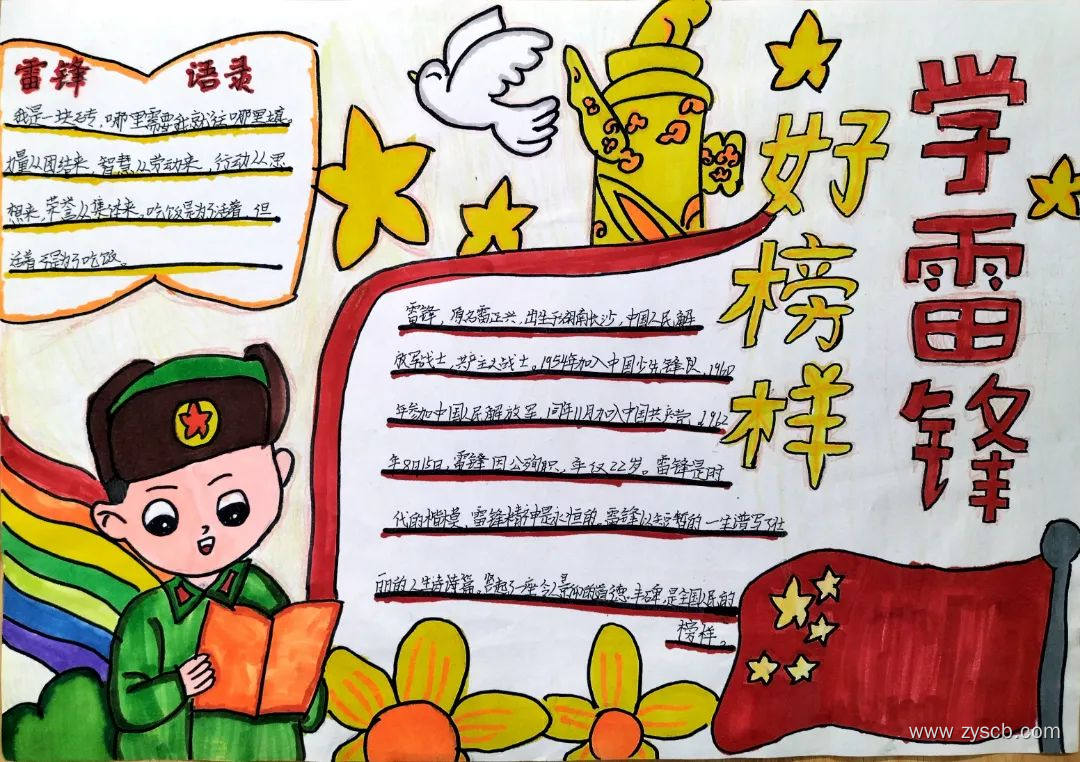 学雷锋
好榜样
雷锋 语录
我是一块砖，哪里需要我就往哪里填。
力量从团结来，智慧从劳动来，行动从思
想来，荣誉从集体来。吃饭是为了活着，但
活着不是为了吃饭。
雷锋，原名雷正兴，出生于湖南长沙，中国人民解
放军战士，共产主义战士。1954年加入中国少年先锋队，1960
年参加中国人民解放军，同年11月加入中国共产党。1962
年8月15日，雷锋因公殉职，年仅22岁。雷锋是时
代的楷模，雷锋精神是永恒的。雷锋以短暂的一生谱写了壮
丽的人生诗篇，竖起了一座令人景仰的道德丰碑，是全国人民的
榜样。
www.zyscb.com